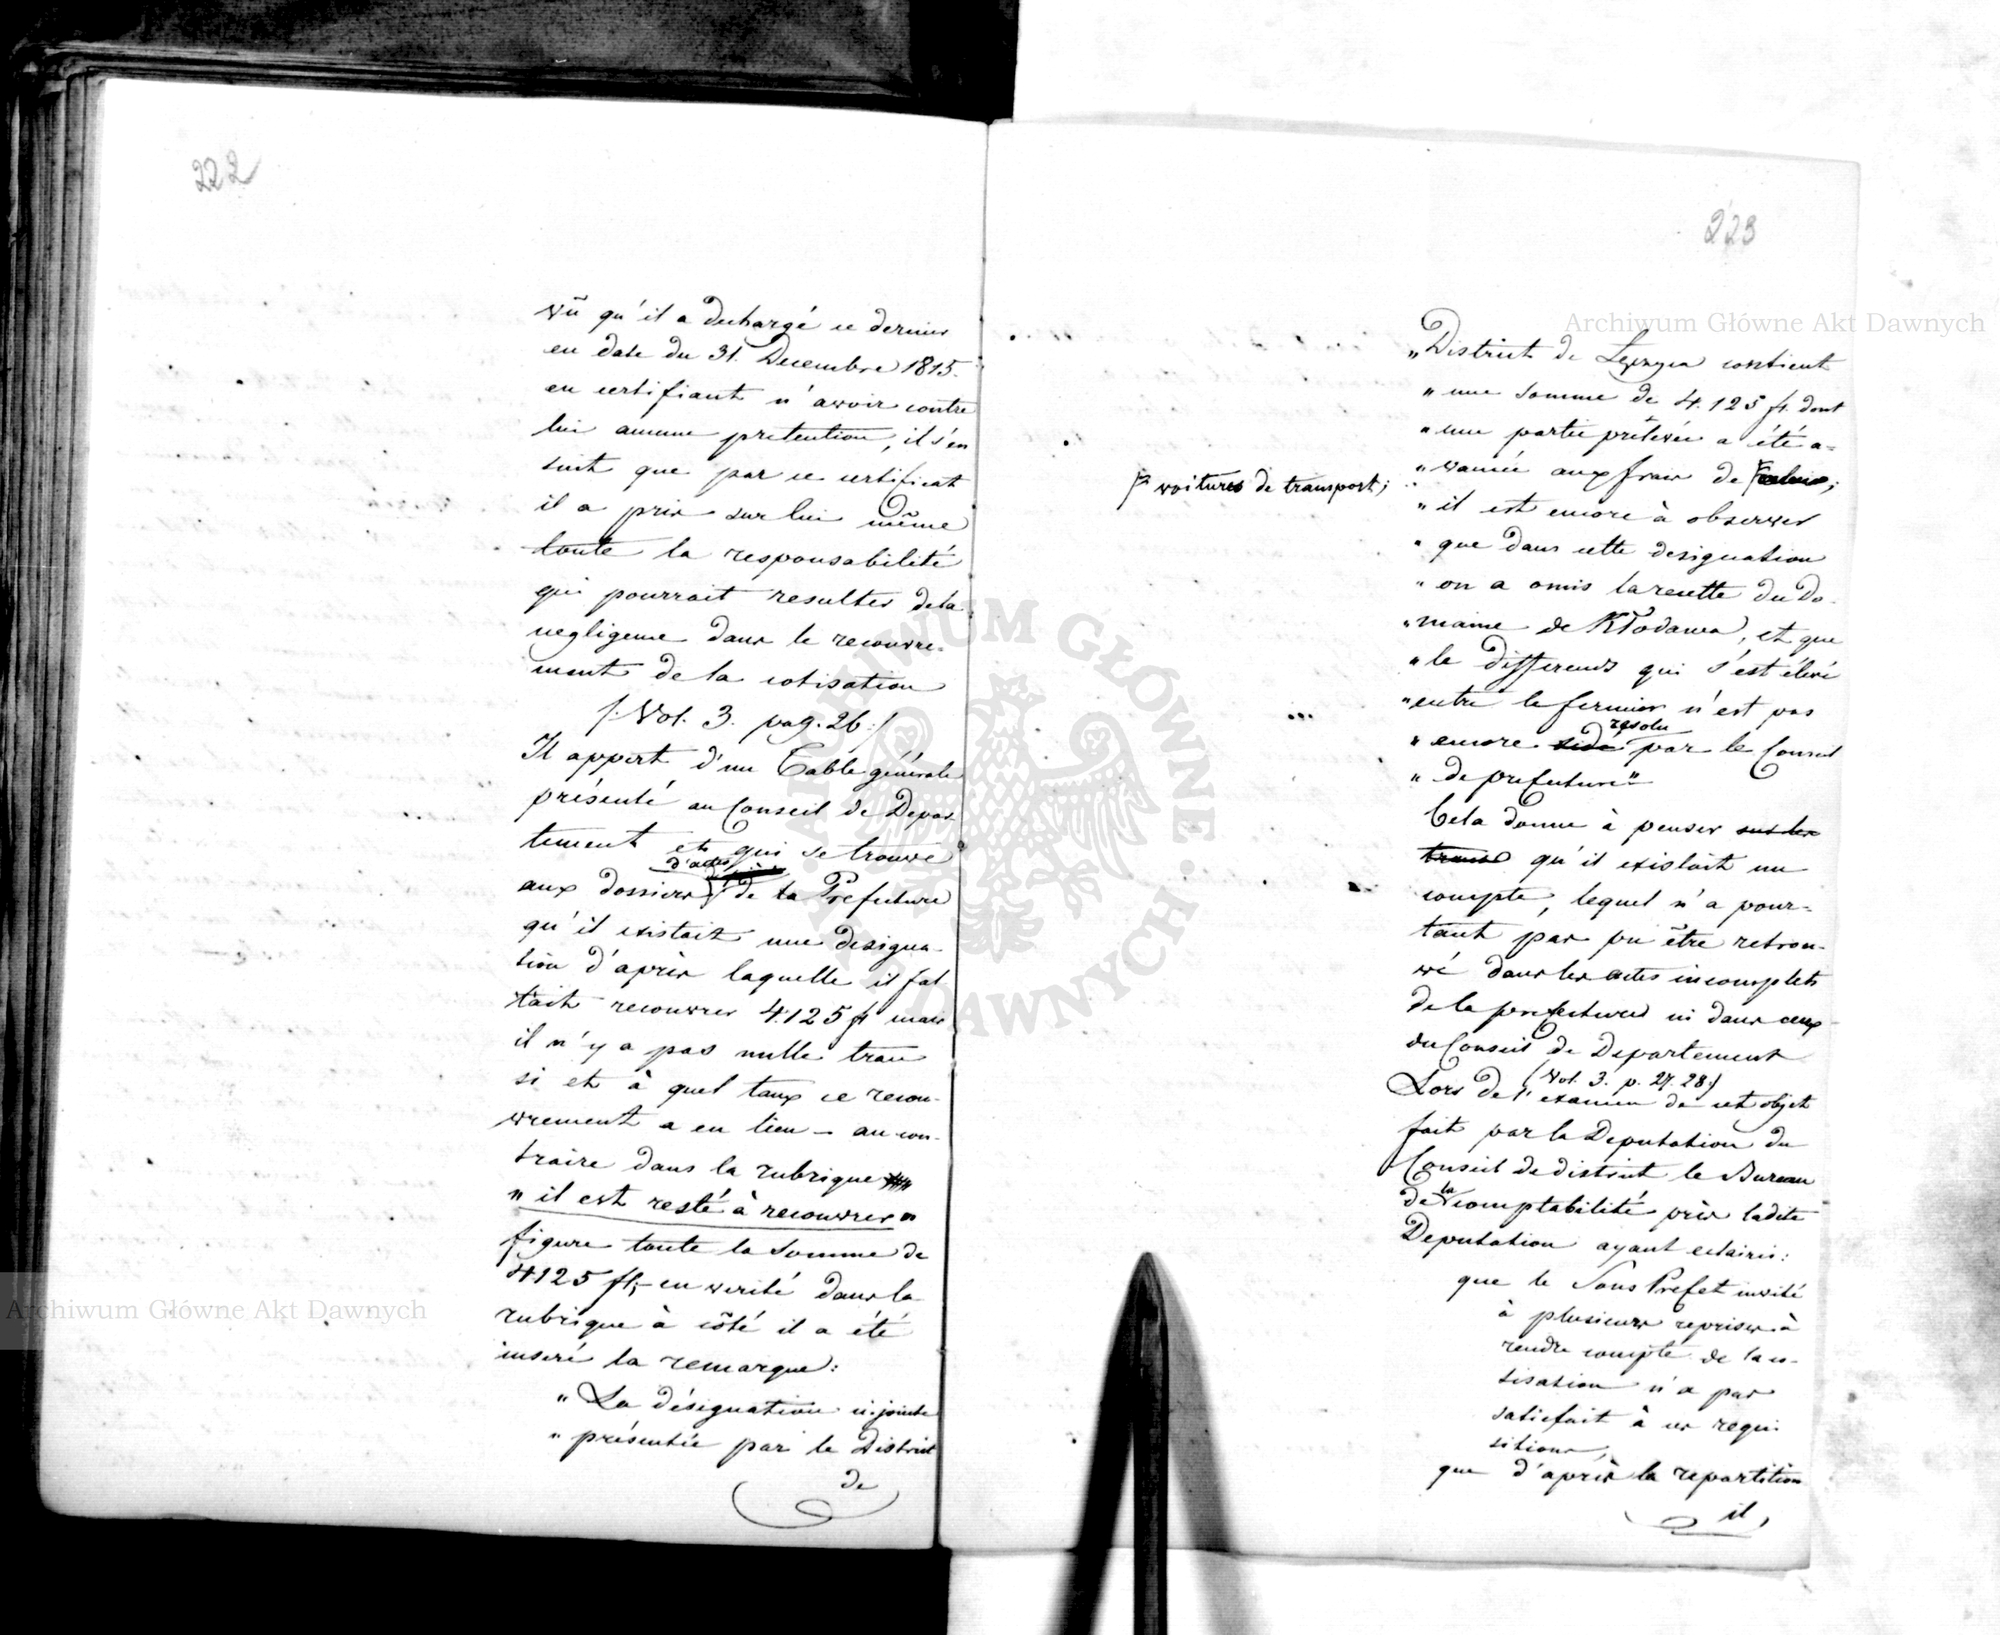 222
vû qu'il a dechargé ce dernier
en date du 31. Decembre 1815.
en certifiant n'avoir contre
lui aucune pretention, il s'en
suit que par ce certificat
il a pris sur lui même
toute la responsabilité
qui pourrait resulter de la
negligence dans le recouvre-
ment de la cotisation
/: Vol. 3. pag. 26 :/
Il appert d'un Table générale
présenté au Conseil de Depar-
tement et qui se trouve
d'actes
aux dossiers de la Prefecture
qu'il existait une designa-
tion d'après laquelle il fal
lait recouvrer 4125 fl mais
il n'y a pas nulle trace
si et à quel taux ce recou-
vrement a eu lieu - au con-
traire dans la rubrique
" il est resté à recouvrer "
figure toute la somme de
4125 fl; en verité dans la
rubrique à côté il a été
inseré la remarque:
" La désignation ci-jointe
" présentée par le District
de
223
" District de Lęczyca contient
" une somme de 4.125 fl. dont
" une partie prélevée a été a-
" vancée aux frais de
voitures de transport;
" il est encore à observer
" que dans cette designation
" on a omis la recette du Do-
" maine de Kłodawa, et que
" le differends qui s'est élevé
" entre le fermier n'est pas
resolu
" encore par le Conseil
" de prefecture"
Cela donne à penser sur les
traces qu'il existait un
compte, lequel n'a pour-
tant pas pu être retrou-
vé dans les actes incomplets
de la prefecture ni dans ceux
du Conseil de Departement
(Vol. 3. p. 27. 28.)
Lors de l'examen de cet objet
fait par la Deputation du
Conseil de district le Bureau
de la comptabilité près ladite
Deputation ayant eclairci:
que le Sous Prefet invité
à plusieurs reprises à
rendre compte de la co-
tisation n'a pas
satisfait à ces requi-
sitions,
que d'après la repartition
il,
Archiwum Główne Akt Dawnych
Archiwum Główne Akt Dawnych
ARCHIWUM GŁÓWNE AKT DAWNYCH